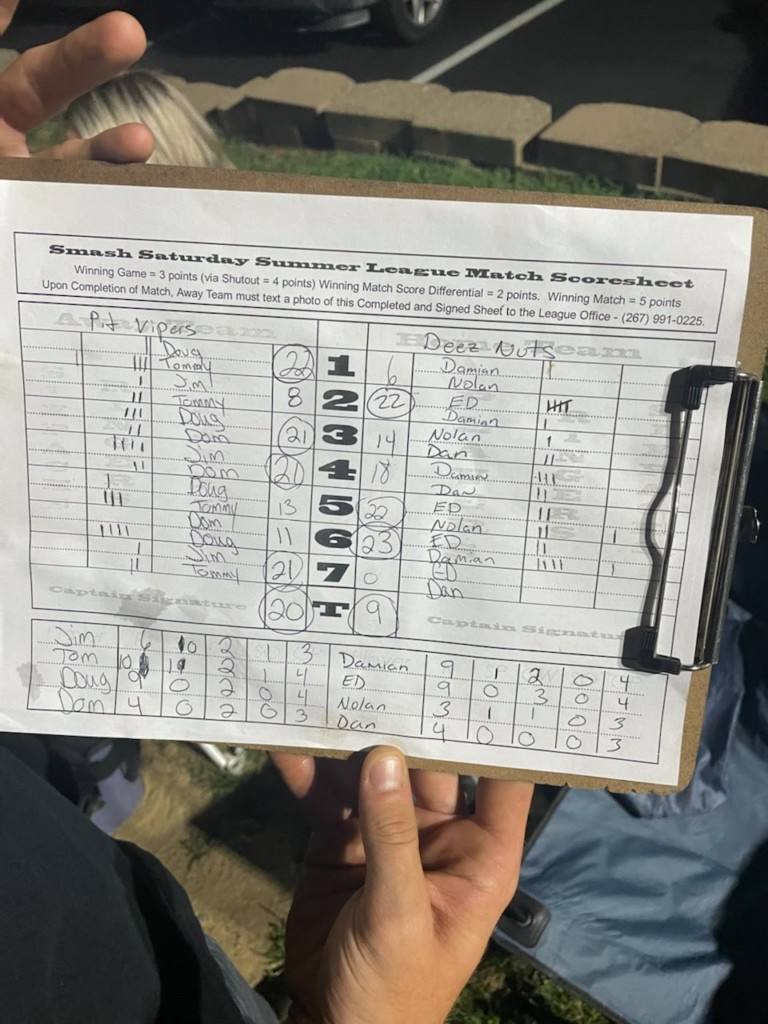 Smash Saturday Summer League Match Scoresheet
Winning Game = 3 points (via Shutout = 4 points) Winning Match Score Differential = 2 points. Winning Match = 5 points
Upon Completion of Match, Away Team must text a photo of this Completed and Signed Sheet to the League Office - (267) 991-0225.
Away Team Home Team
Pit Vipers Deez Nuts
Doug 22 1 6 Damian
Tommy Nolan
Jim 8 2 22 ED
Tommy Damian
Doug 21 3 14 Nolan
Dom Dan
Jim 21 4 18 Damian
Dom Dan
Doug 13 5 22 ED
Tommy Nolan
Dom 11 6 23 ED
Doug Damian
Jim 21 7 0 ED
Tommy Dan
20 T 9
Captain Signature Captain Signatu
Jim 6 10 2 1 3 Damian 9 1 2 0 4
Tom 10 2 1 4 ED 9 0 3 0 4
Doug 9 0 2 0 4 Nolan 3 1 1 0 3
Dom 4 0 2 0 3 Dan 4 0 0 0 3